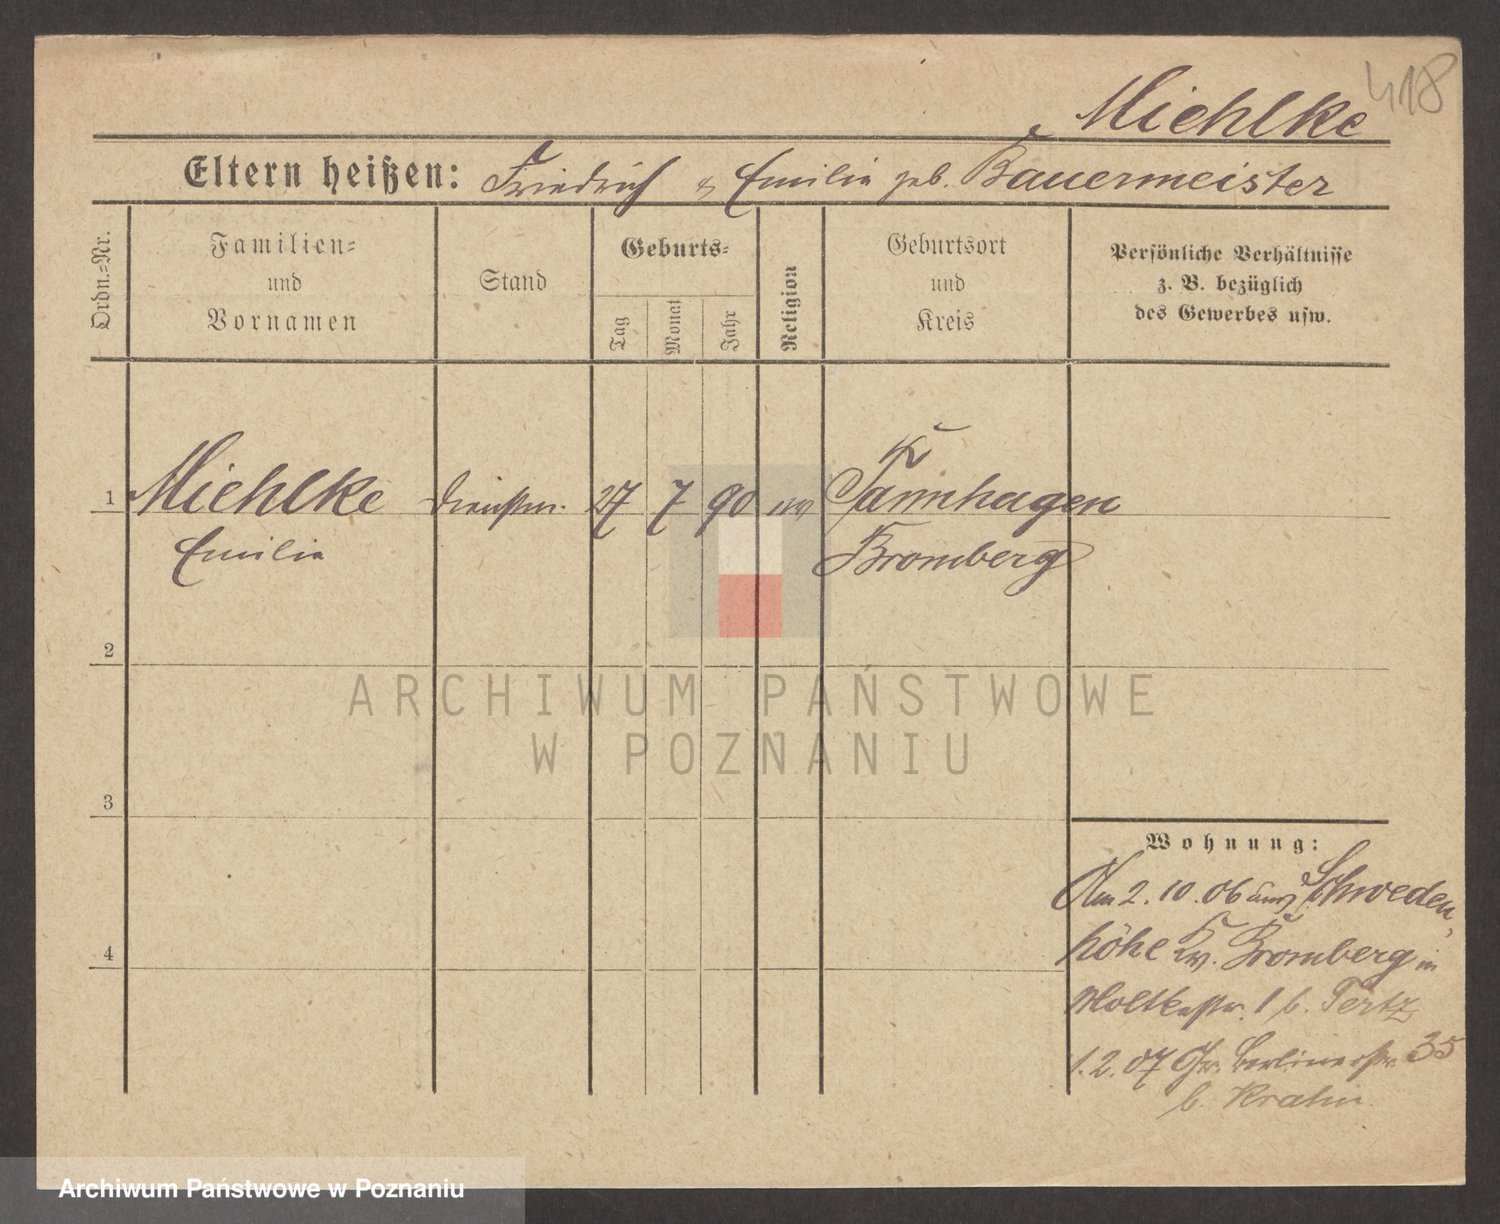 418
Miehlke
Eltern heißen: Friedrich & Emilie geb. Bauermeister
Ordn.=Nr.
Familien=
und
Vornamen
Stand
Geburts=
Tag
Monat
Jahr
Religion
Geburtsort
und
Kreis
Persönliche Verhältnisse
z. B. bezüglich
des Gewerbes usw.
1 Miehlke 27 7 90 ev Tannhagen
Emilie Bromberg
2
ARCHIWUM PAŃSTWOWE
W POZNANIU
3
4
Wohnung:
Am 2. 10. 06 aus Schweden-
höhe Kr. Bromberg in
Moltkestr. 1 b.
1. 2. 07 Gr. Berlinerstr. 35
b.
Archiwum Państwowe w Poznaniu